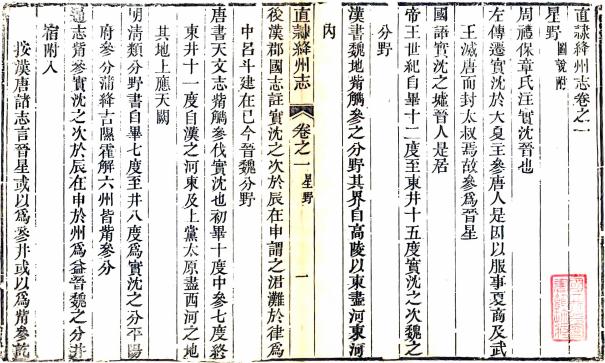 直隸絳州志卷之一
星野 圖說附
周禮保章氏注實沈晉也
左傳遷實沈於大夏主參唐人是因以服事夏商及武
王滅唐而封太叔焉故參爲晉星
國語實沈之墟晉人是居
帝王世紀自畢十二度至東井十五度實沈之次魏之
分野
漢書魏地觜觿參之分野其界自高陵以東盡河東河
內
直隸絳州志 卷之一 星野 一
後漢郡國志註實沈之次於辰在申謂之涒灘於律爲
中呂斗建在巳今晉魏分野
唐書天文志觜觿參伐實沈也初畢十度中參七度終
東井十一度自漢之河東及上黨太原盡西河之地
其地上應天闕
明清類分野書自畢七度至井八度爲實沈之分平陽
府參分蒲絳吉隰霍解六州皆觜參分
通志觜參實沈之次於辰在申於州爲益晉魏之分井
宿附入
按漢唐諸志言晉星或以爲參井或以爲觜參乾